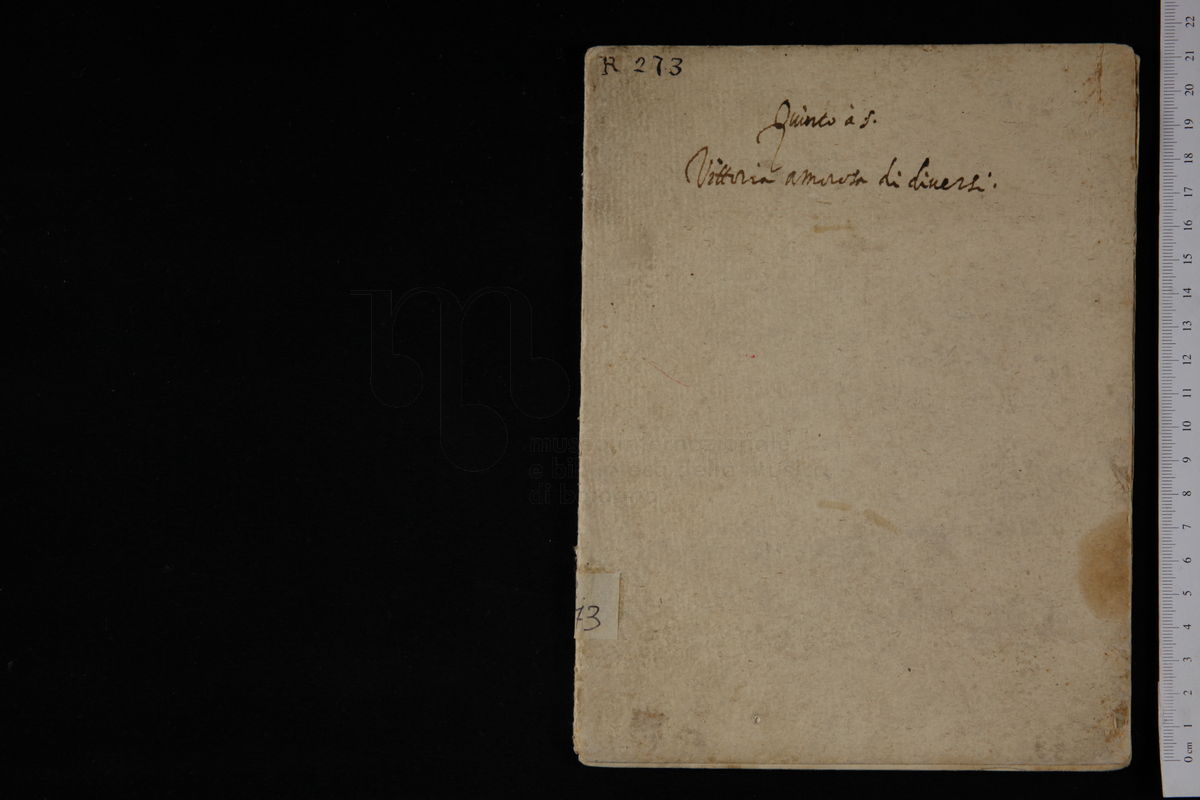 R 273
Quinto à 5.
Vittoria amorosa di diversi.
museo internazionale
e biblioteca della musica
di bologna
73
22
21
20
19
18
17
16
15
14
13
12
11
10
9
8
7
6
5
4
3
2
1
0 cm